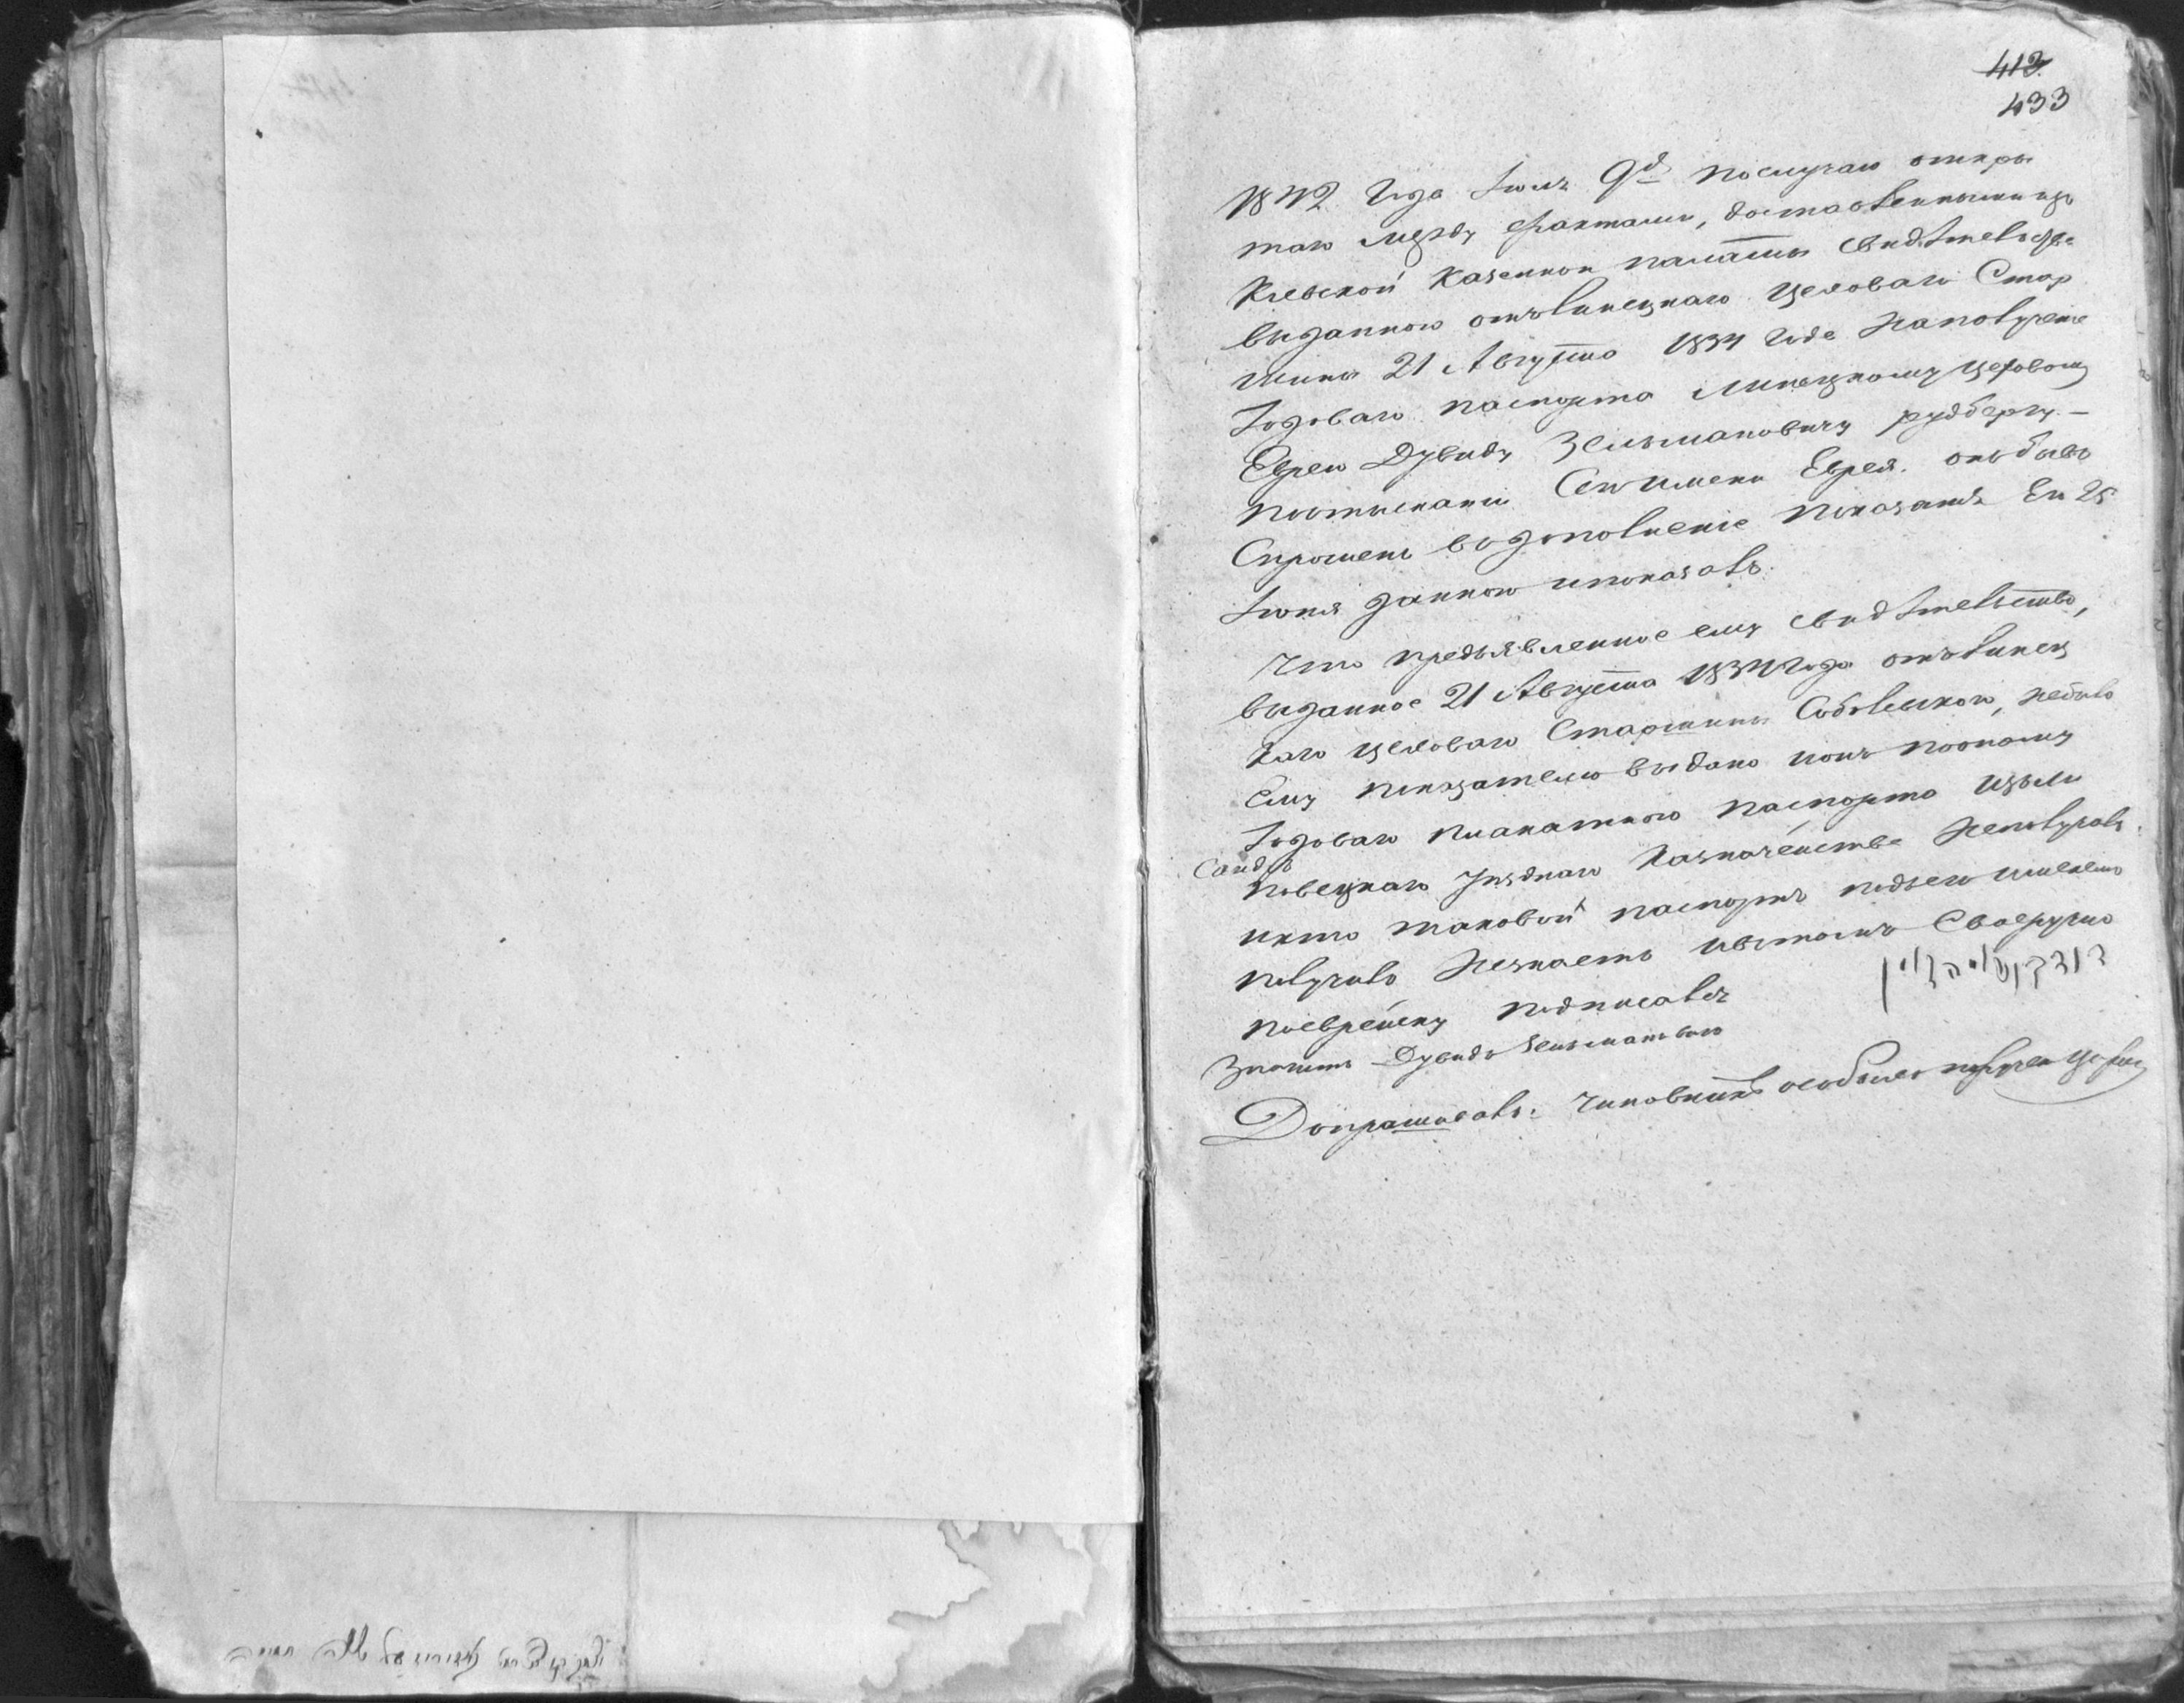 413
433
1842 Года Іюля 9д по случаю откры
таго между фактами, доставленными изъ
Кіевской Казенной палаты свидѣтельства
выданного отъ Липецкаго цеховаго Стар
шины 21 Августа 1834 Года на получение
Годоваго паспорта Липецкому цеховому
Еврею Дувиду Зельмановичу рудбергу –
Сего имени Еврея. онъ бывъ
Спрошенъ въ дополнение показанія Ею 25
Іюня данного и показалъ:
Что предъявленное ему свидѣтельство,
выданное 21 Августа 1834 Года отъ Липец
каго цеховаго Старшины Соболевского, не было
Ему показателю выдано и онъ по оному
Годоваго плакатного паспорта изъ Ли
повецкаго Уѣзднаго Казначейства не получалъ.
и кто таковый паспортъ подъ его именемъ
получилъ не знаетъ и въ томъ Своеручно
поеврейску подписался
Значитъ Дувидъ Зельмановъ
Допрашивалъ: Чиновникъ особыхъ